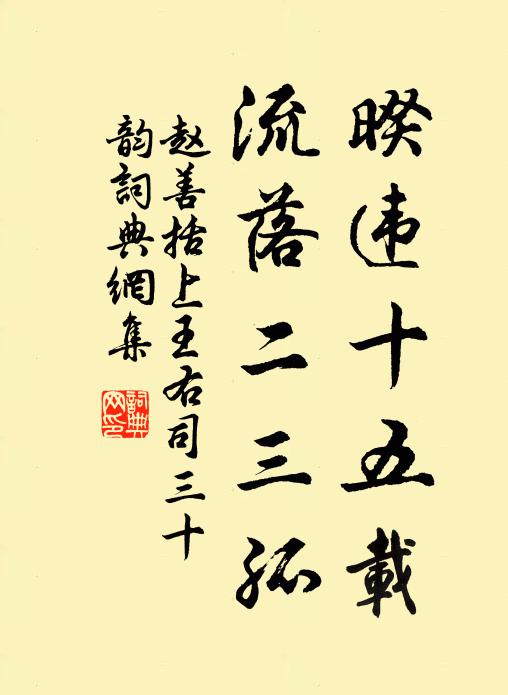 睽违十五載
流落二三孤
赵善括上王右司三十
韵詞典網集
詞典网印